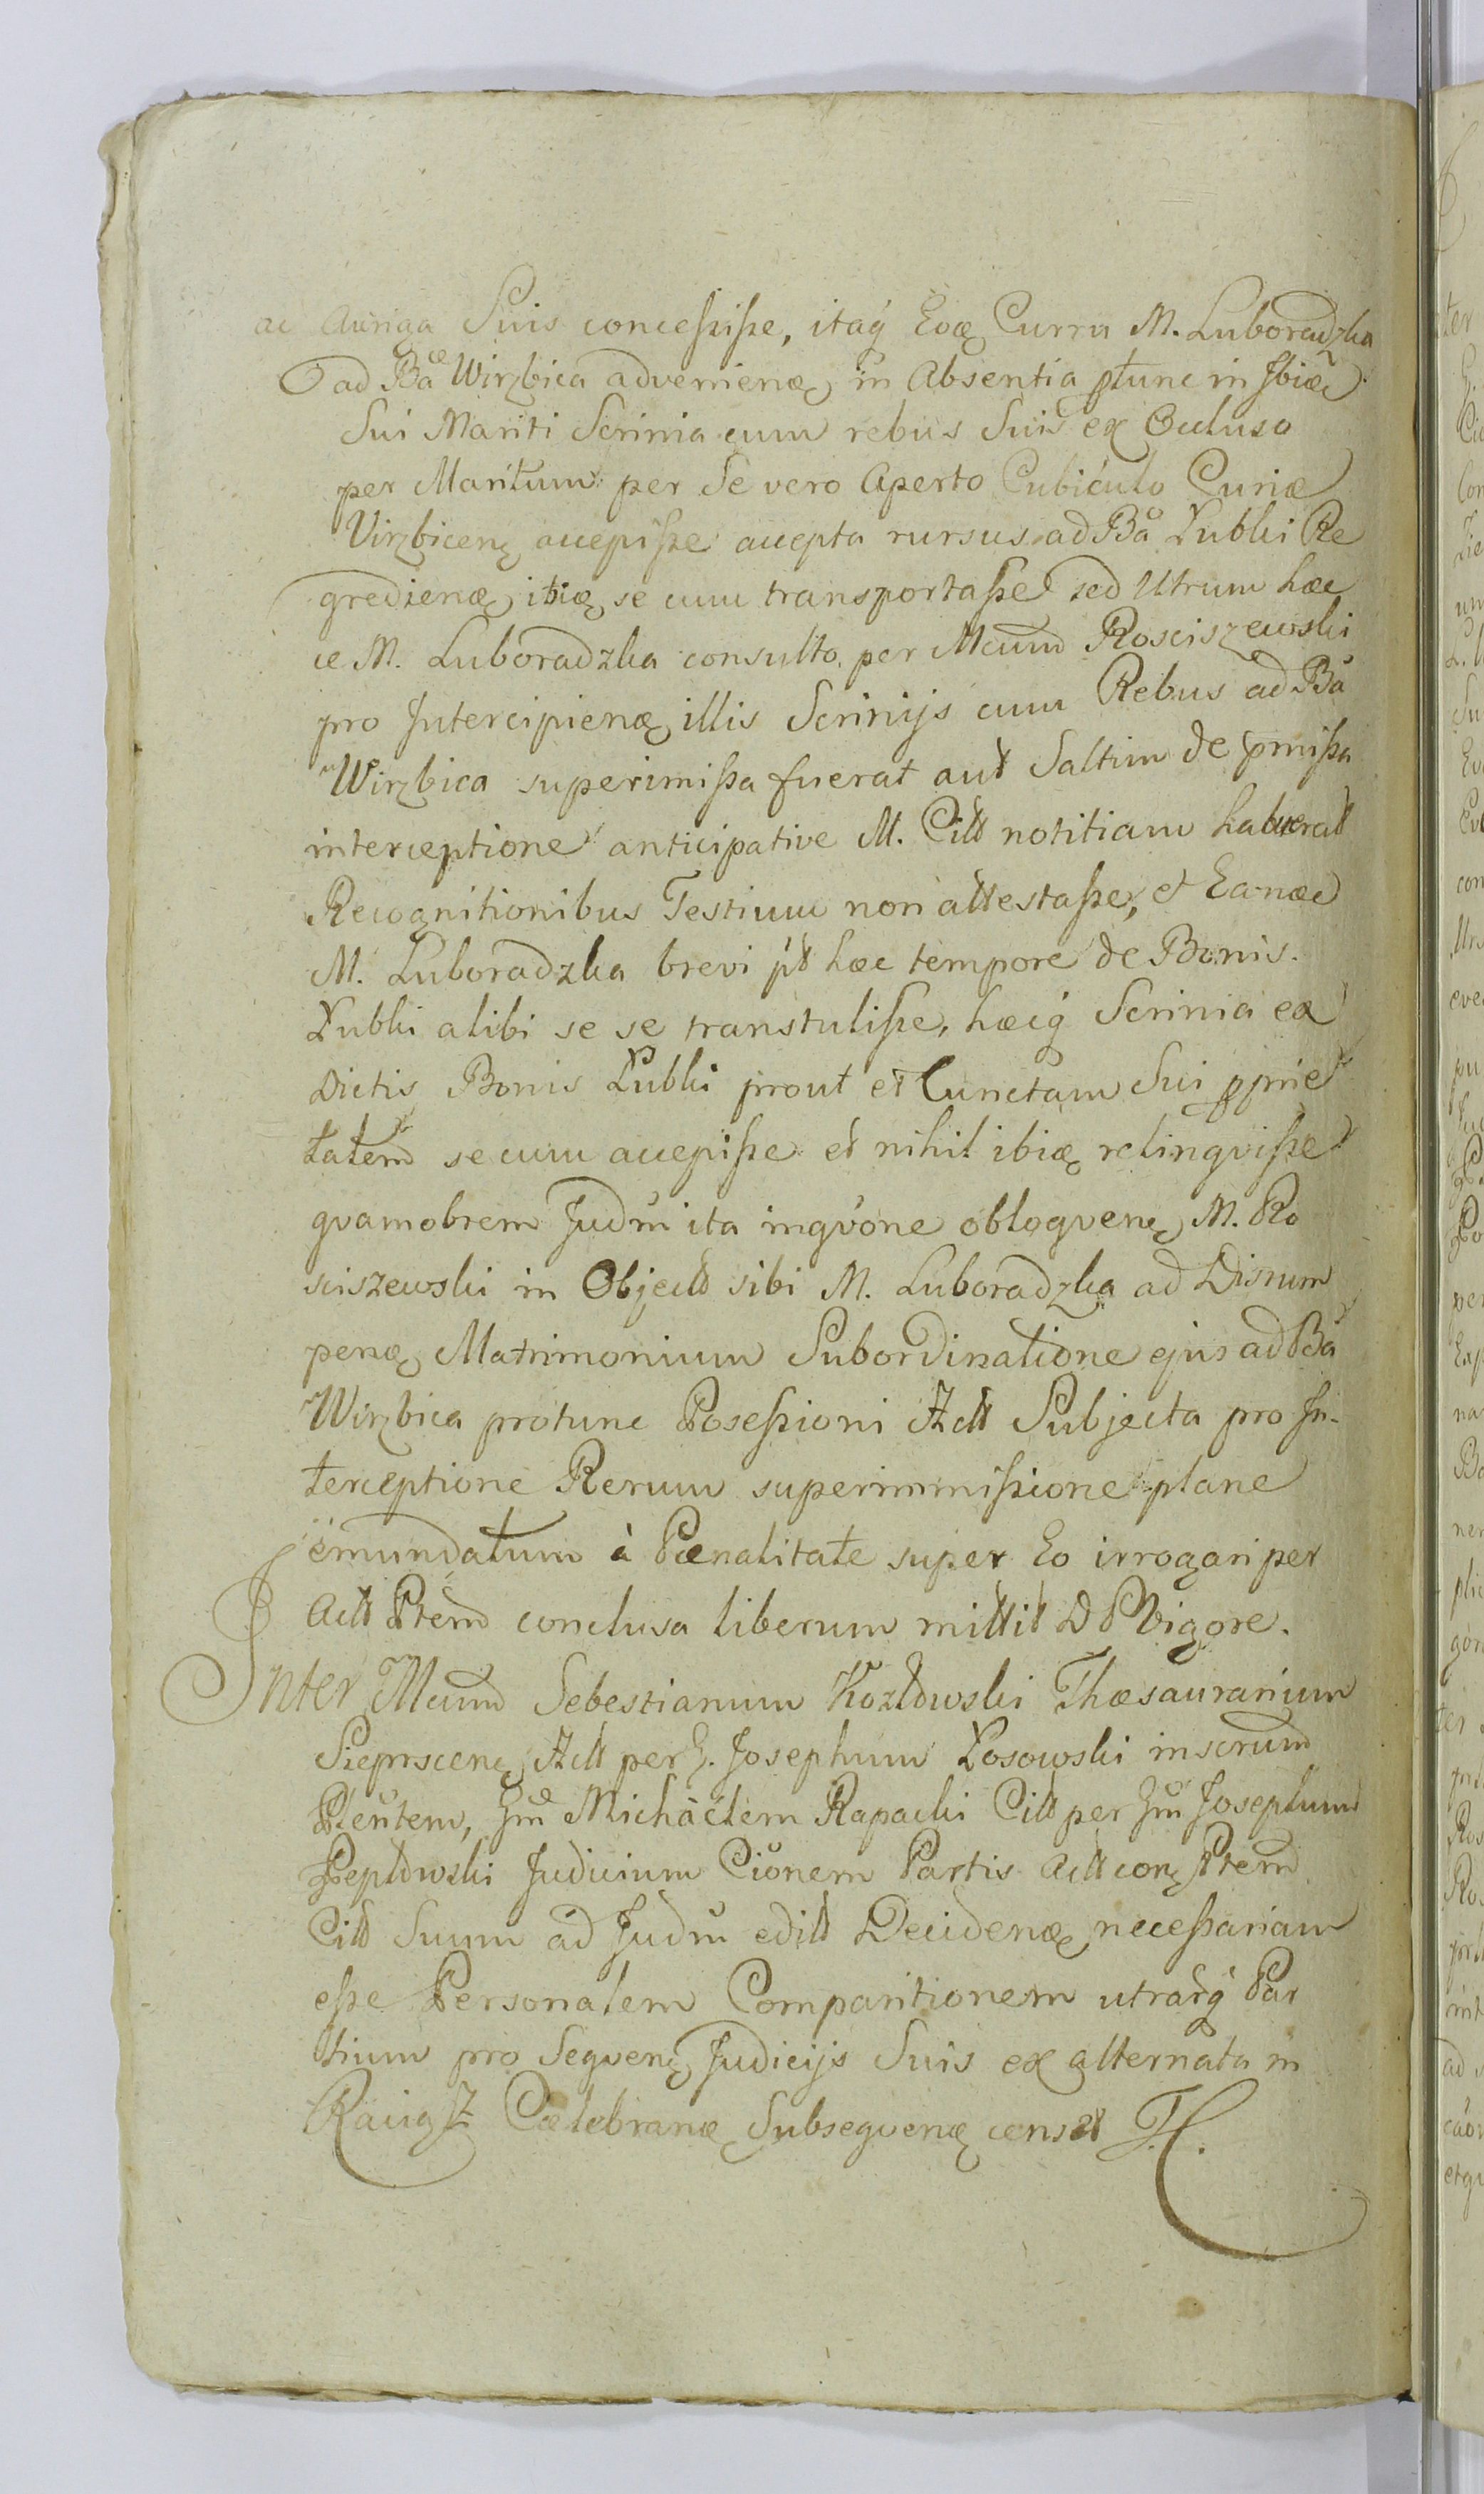 ac Auriga Suis concessisse, itaq́ Eoæ Curru M. Luboradzka
ad Bä Wirzbica advenienæ in Absentia ptunc in Ibiæ
Sui Mariti Scrinia cum rebus Suis ex Occluso
per Maritum per Se vero Aperto Cubiculo Curiæ
Virzbicenę accepisse accepta rursus ad Bä Łubki Re
gredienæ, ibiæ se cum transportasse sed Utrum hæc
ce M. Luboradzka consulto per Mcum Rosciszewski
pro Intercipienæ illis Scrinijs cum Rebus ad Bä
Wirzbica superimissa fuerat aut Saltim de pmissa
interceptione anticipative M. Citt notitiam habuerat
Recognitionibus Testium non attestasse, et Ea-næ
M. Luboradzka brevi pt hæc tempore de Bonis.
Łubki alibi se se transtulisse, hæcq́ Scrinia ex
Dictis Bonis Łubki prout et Cunctam Sui pprie
tatem secum accepisse et nihil ibiæ relinqvisse
qvamobrem Judm ita inqvone obloqvenę M. Ro
sciszewski in Objectt sibi M. Luboradzka ad Disrum
penæ Matrimonium Subordinatione ejus ad Bä
Wirzbica protunc Posessioni Actt Subjecta pro In-
terceptione Rerum superimmissione plane
emundatum à Pœnalitate super Eo irrogari per
Actt Ptem conclusa liberum mittit D P Vigore.
Inter Mcum Sebestianum Kozłowski Thæsaurarium
Sieprscenę Actt per G. Josephum Łosowski inscrum
Pleutem, Gm Michäelem Rapacki Citt per Gm Josephum
Pepłowski Judicium Cionem Partis Actt conę Ptem
Citt Suum ad Judm editt Decidenæ necessariam
esse Personalem Comparitionem utrarq́ Par
tium pro Seqvenę Judicijs Suis ex alternata in
Raciąz Cælebranæ Subseqvenæ censet H.